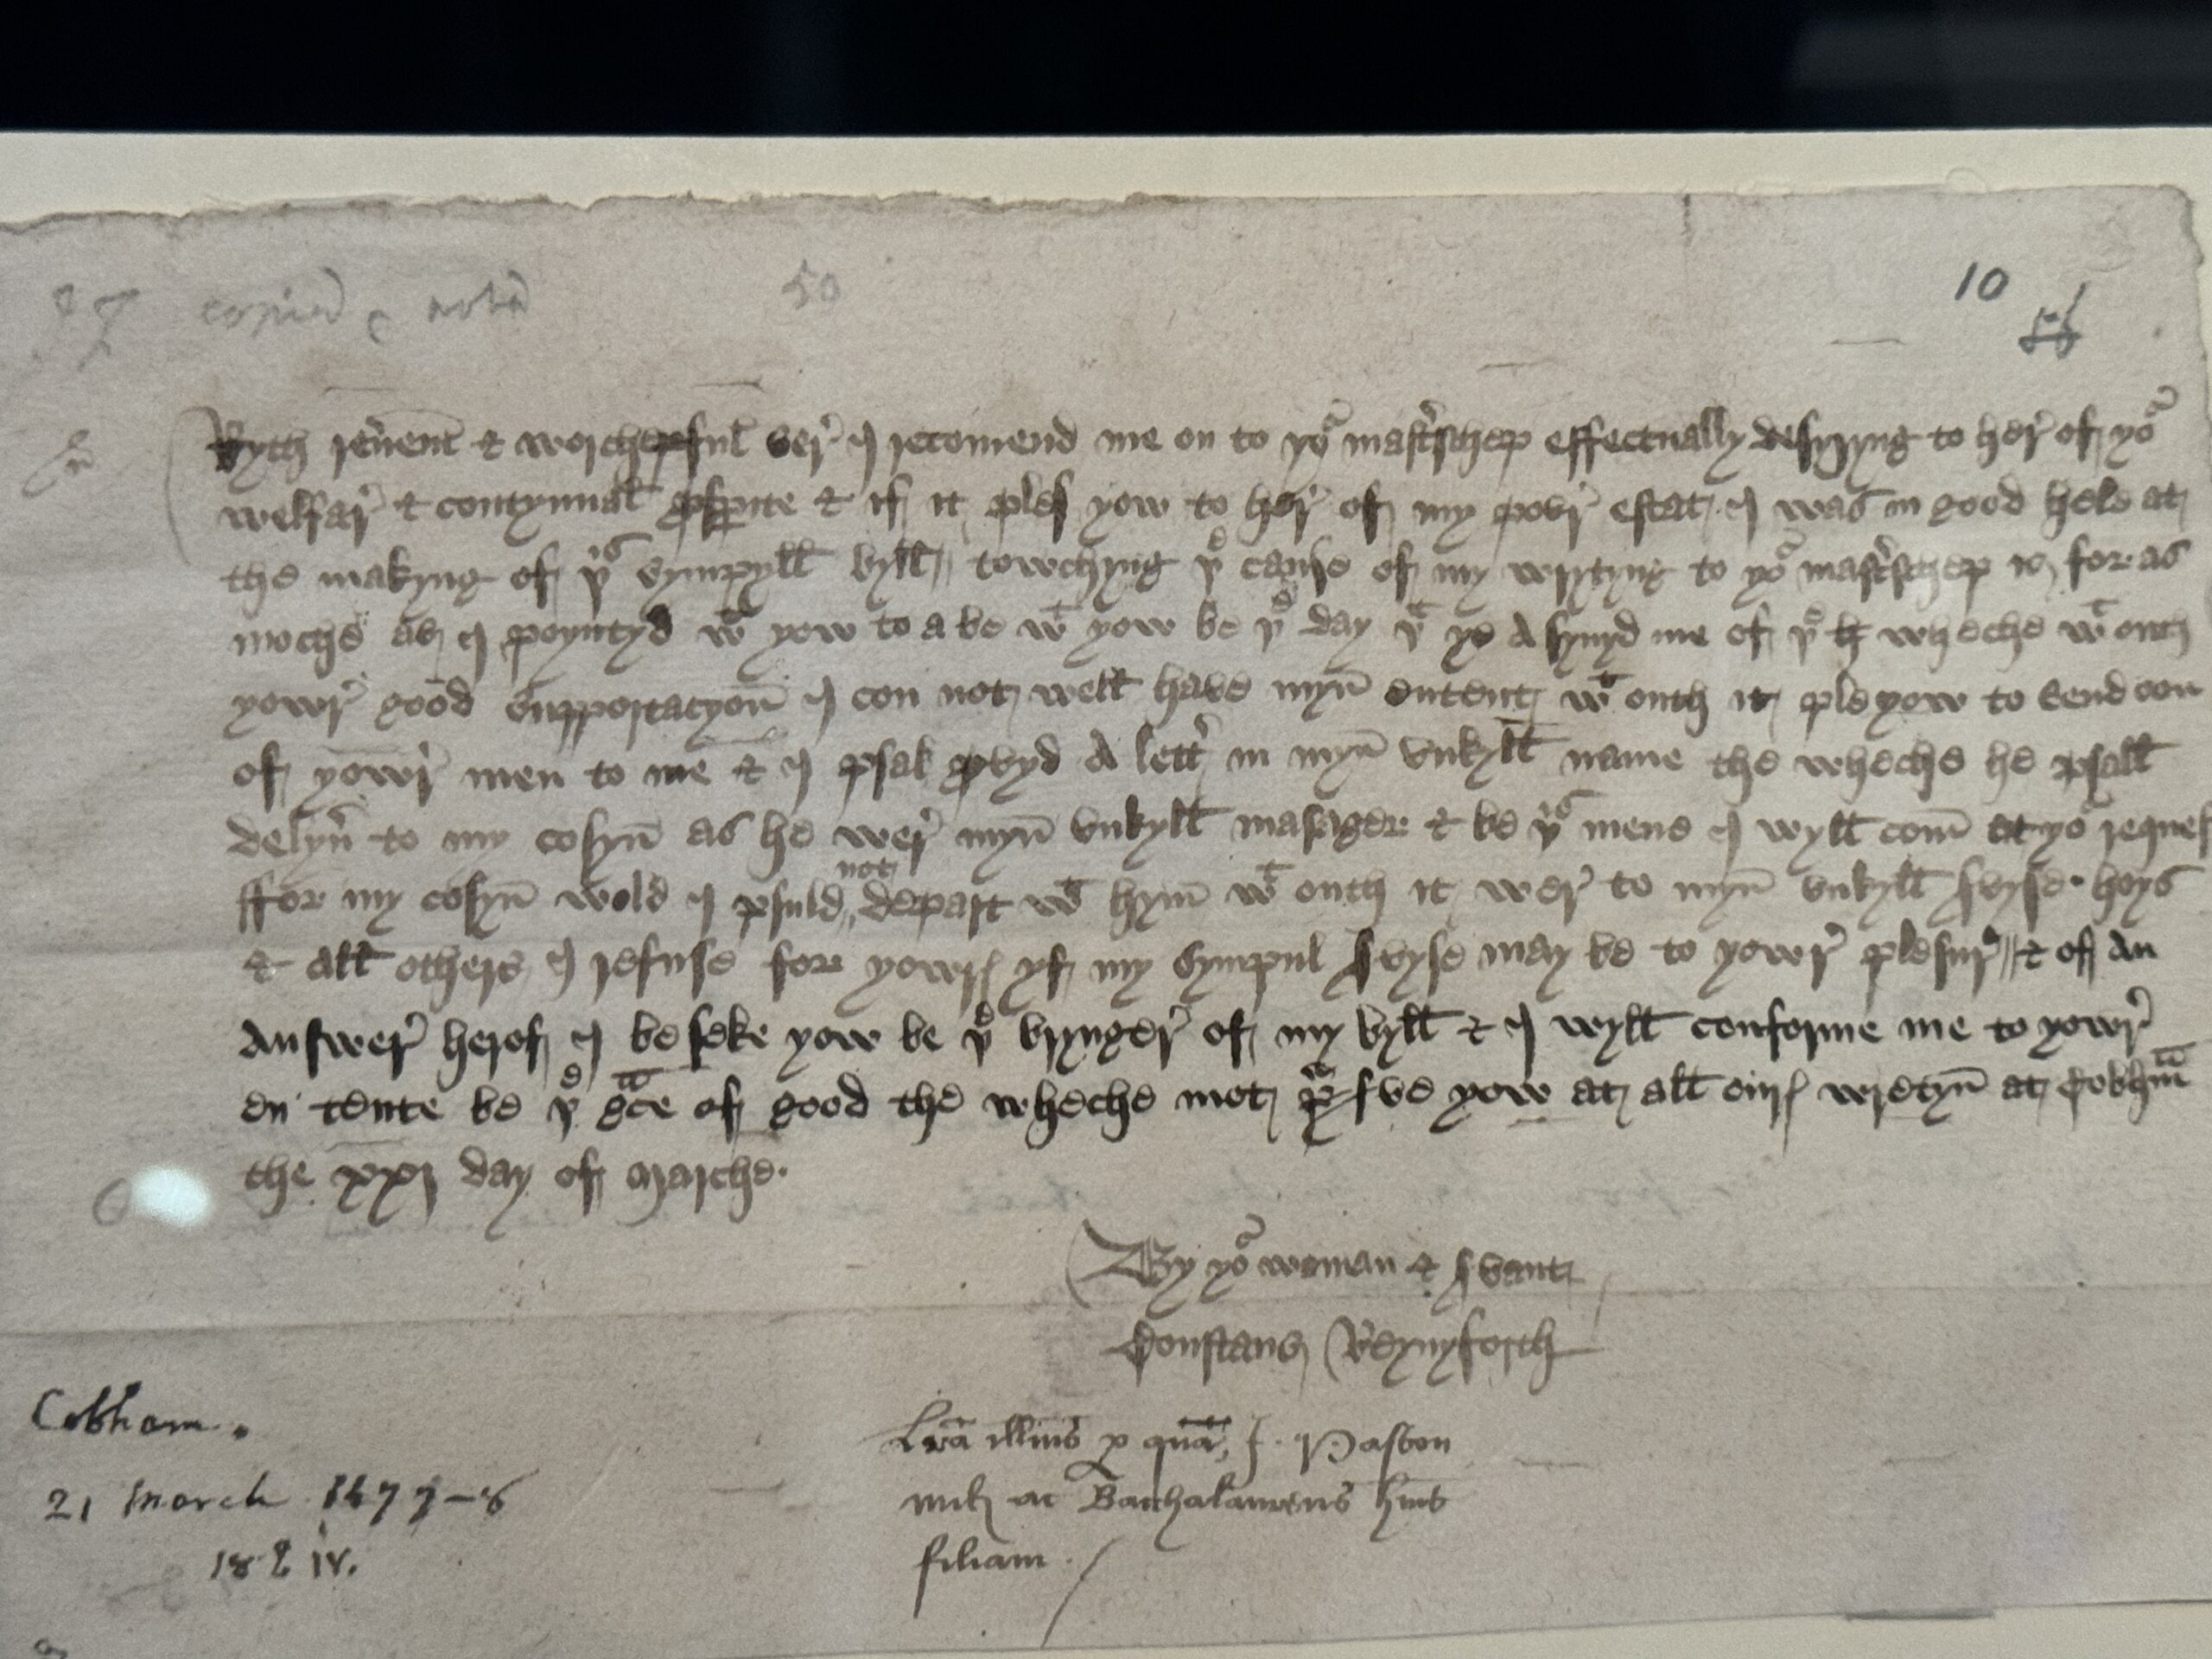 copied & noted
50
10
Ryth reuerent & worchepful ser I recomend me on to yor mastrschep effectually desyryng to her of yor
welfar & contynual prosprite & if it ples yow to her of my povr estat I was in good hele at
the makyng of yis sympyll byll towchyng ye cause of my wrytyng to yor mastrschep is for as
moche as I poyntyd wt yow to a be wt yow be ye day yt ye A synyd me of ye wheche wt outh
yowr good supportacyon I con not well have myn entent wt outh it ple yow to send oon
of yowr men to me & I xsal prvyd A lettr in myn vnkyll name the wheche he xsall
delyuer to my cosyn as he wer myn vnkyll masager & be yis mene I wyll com at yor reques
ffor my cosyn wold I xsuld not depart wt hym wt outh it wer to myn vnkyll servyse hoys
& all others I refuse for yowrs yf my sympul servyse may be to yowr plesur & of an
Answer herof I be seke yow be ye brynger of my byll & I wyll conforme me to yowr
en tente be ye grace of good the wheche mot preserve yow at all ours wretyn at Cobham
the xxj day of Marche
By yor woman & servant
Constans Reynyforth
Cobham.
21 March 1477-8
18 E iv.
Lra illius per quam J. Paston
mil ac Bacchalaureus huit
filiam